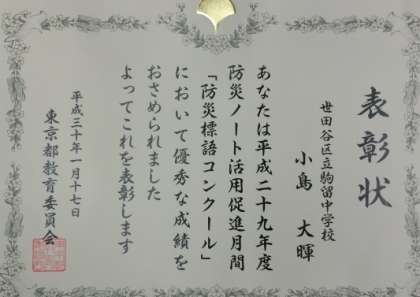 表彰状
世田谷区立駒留中学校
小島 大暉
あなたは平成二十九年度
防災ノート活用促進月間
「防災標語コンクール」
において優秀な成績を
おさめられました
よってこれを表彰します
平成三十年一月十七日
東京都教育委員会